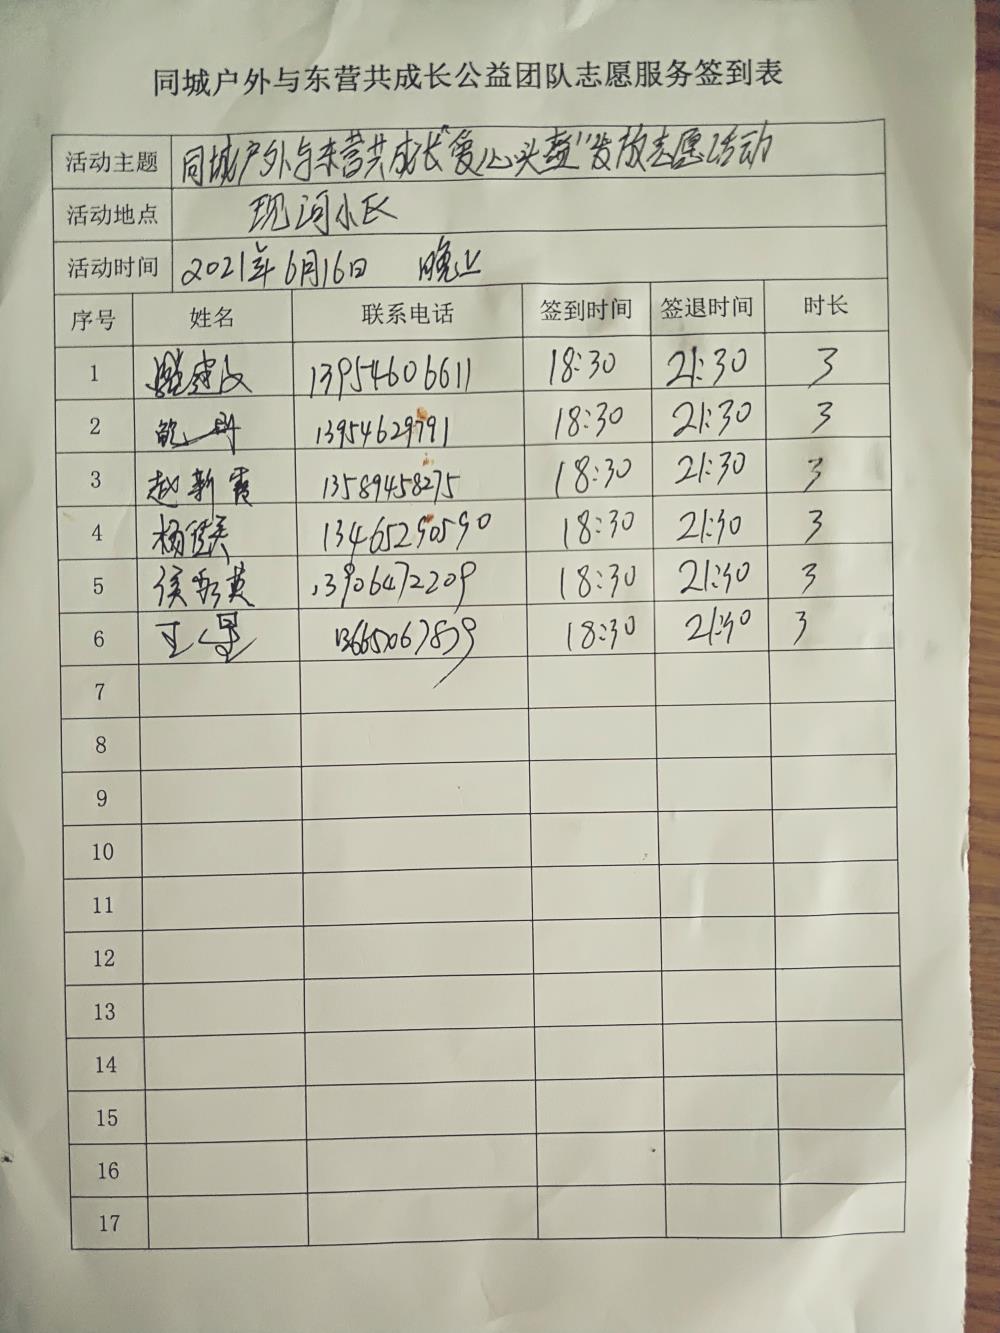 同城户外与东营共成长公益团队志愿服务签到表
活动主题 同城户外与东营共成长"爱心头盔"发放志愿活动
活动地点 现河小区
活动时间 2021年6月16日 晚上
序号 姓名 联系电话 签到时间 签退时间 时长
1 13954606611 18:30 21:30 3
2 13954629791 18:30 21:30 3
3 赵新霞 13589458275 18:30 21:30 3
4 杨 13465290590 18:30 21:30 3
5 侯 英 13906472209 18:30 21:30 3
6 王 18:30 21:30 3
7
8
9
10
11
12
13
14
15
16
17